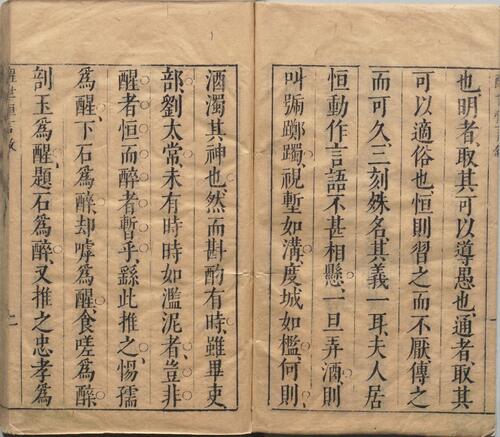 也明者、取其可以導愚也、通者、取其
可以適俗也、恒則習之而不厭、傳之
而可久、三刻殊名、其義一耳、夫人居
恒動作言語不甚相懸、一旦弄酒、則
叫號躑躅、視塹如溝、度城如檻、何則、
酒濁其神也、然而斟酌有時、雖畢吏
部、劉太常、未有時時如濫泥者、豈非
醒者恒而醉者暫乎、繇此推之、惕孺
為醒、下石為醉、却嘑為醒、食嗟為醉
剖玉為醒、題石為醉、又推之忠孝為
醒世恒言敘
二